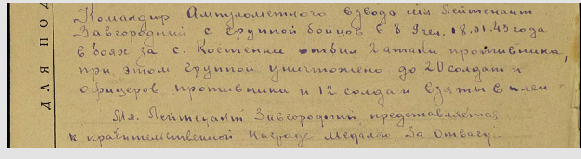 Командир Ампулометного взвода мл. Лейтенант
Завгородний с группой бойцов в 8 18.11.43 года
в боях за с. Костенки отбил 2 атаки противника,
при этом группой уничтожено до 20 солдат и
офицеров противника и 12 солдат взяты в плен
Мл. Лейтенант Завгородний представляется
к правительственной награде медалью За Отвагу.
ДЛЯ ПОД